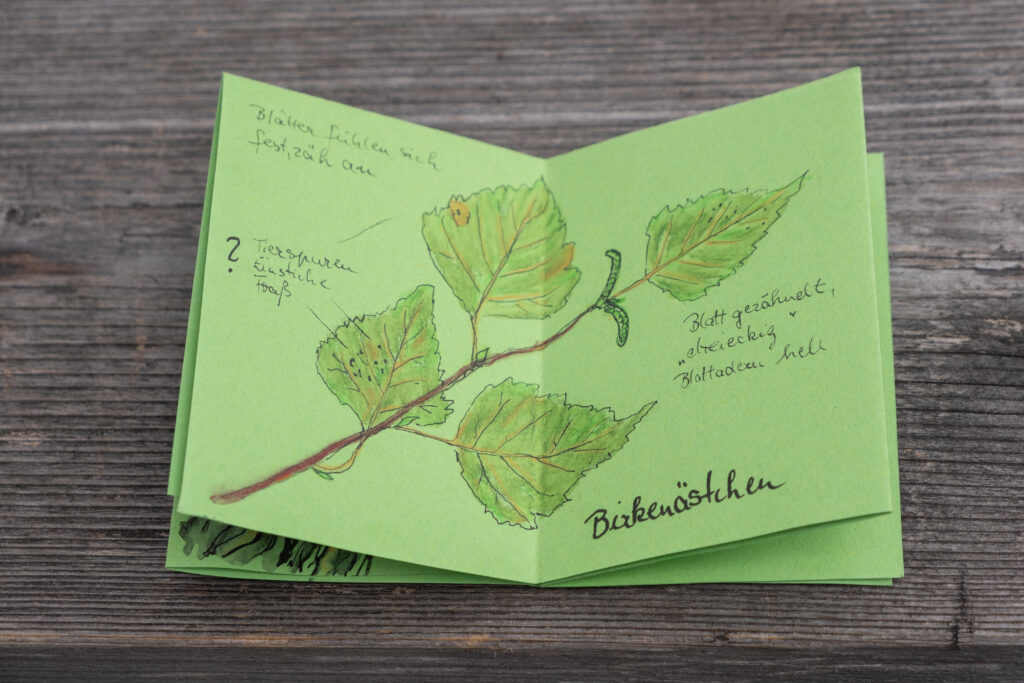 Blätter fühlen sich
fest, zäh an
? Tierspuren
Einstiche
Fraß
Blatt gezähndelt,
„dreieckig"
Blattadern hell
Birkenästchen